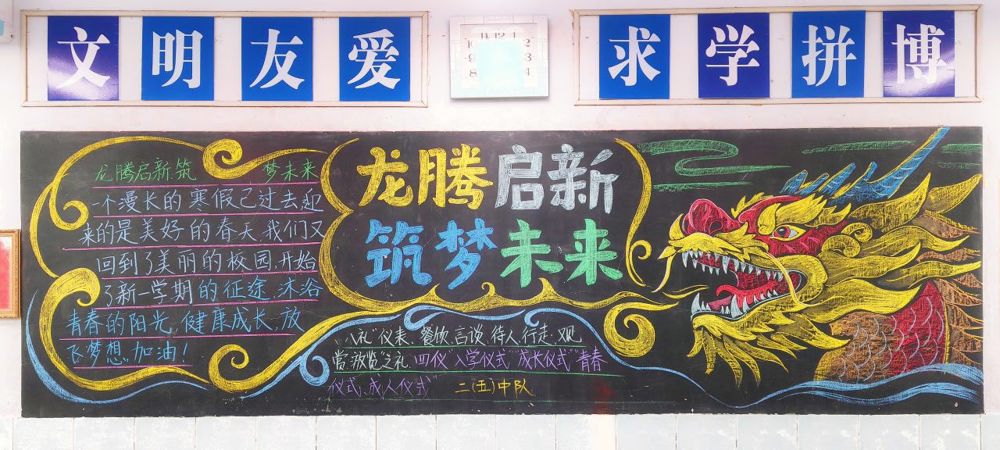 文明友爱
求学拼博
龙腾启新
筑梦未来
龙腾启新筑 梦未来
一个漫长的寒假已过去迎
来的是美好的春天,我们又
回到了美丽的校园,开始
了新一学期的征途,沐浴
青春的阳光,健康成长,放
飞梦想,加油!
"八礼"仪表、餐饮、言谈、待人、行走、观
赏、游览之礼 四仪"入学仪式""成长仪式""青春
仪式、成人仪式" 二(五)中队